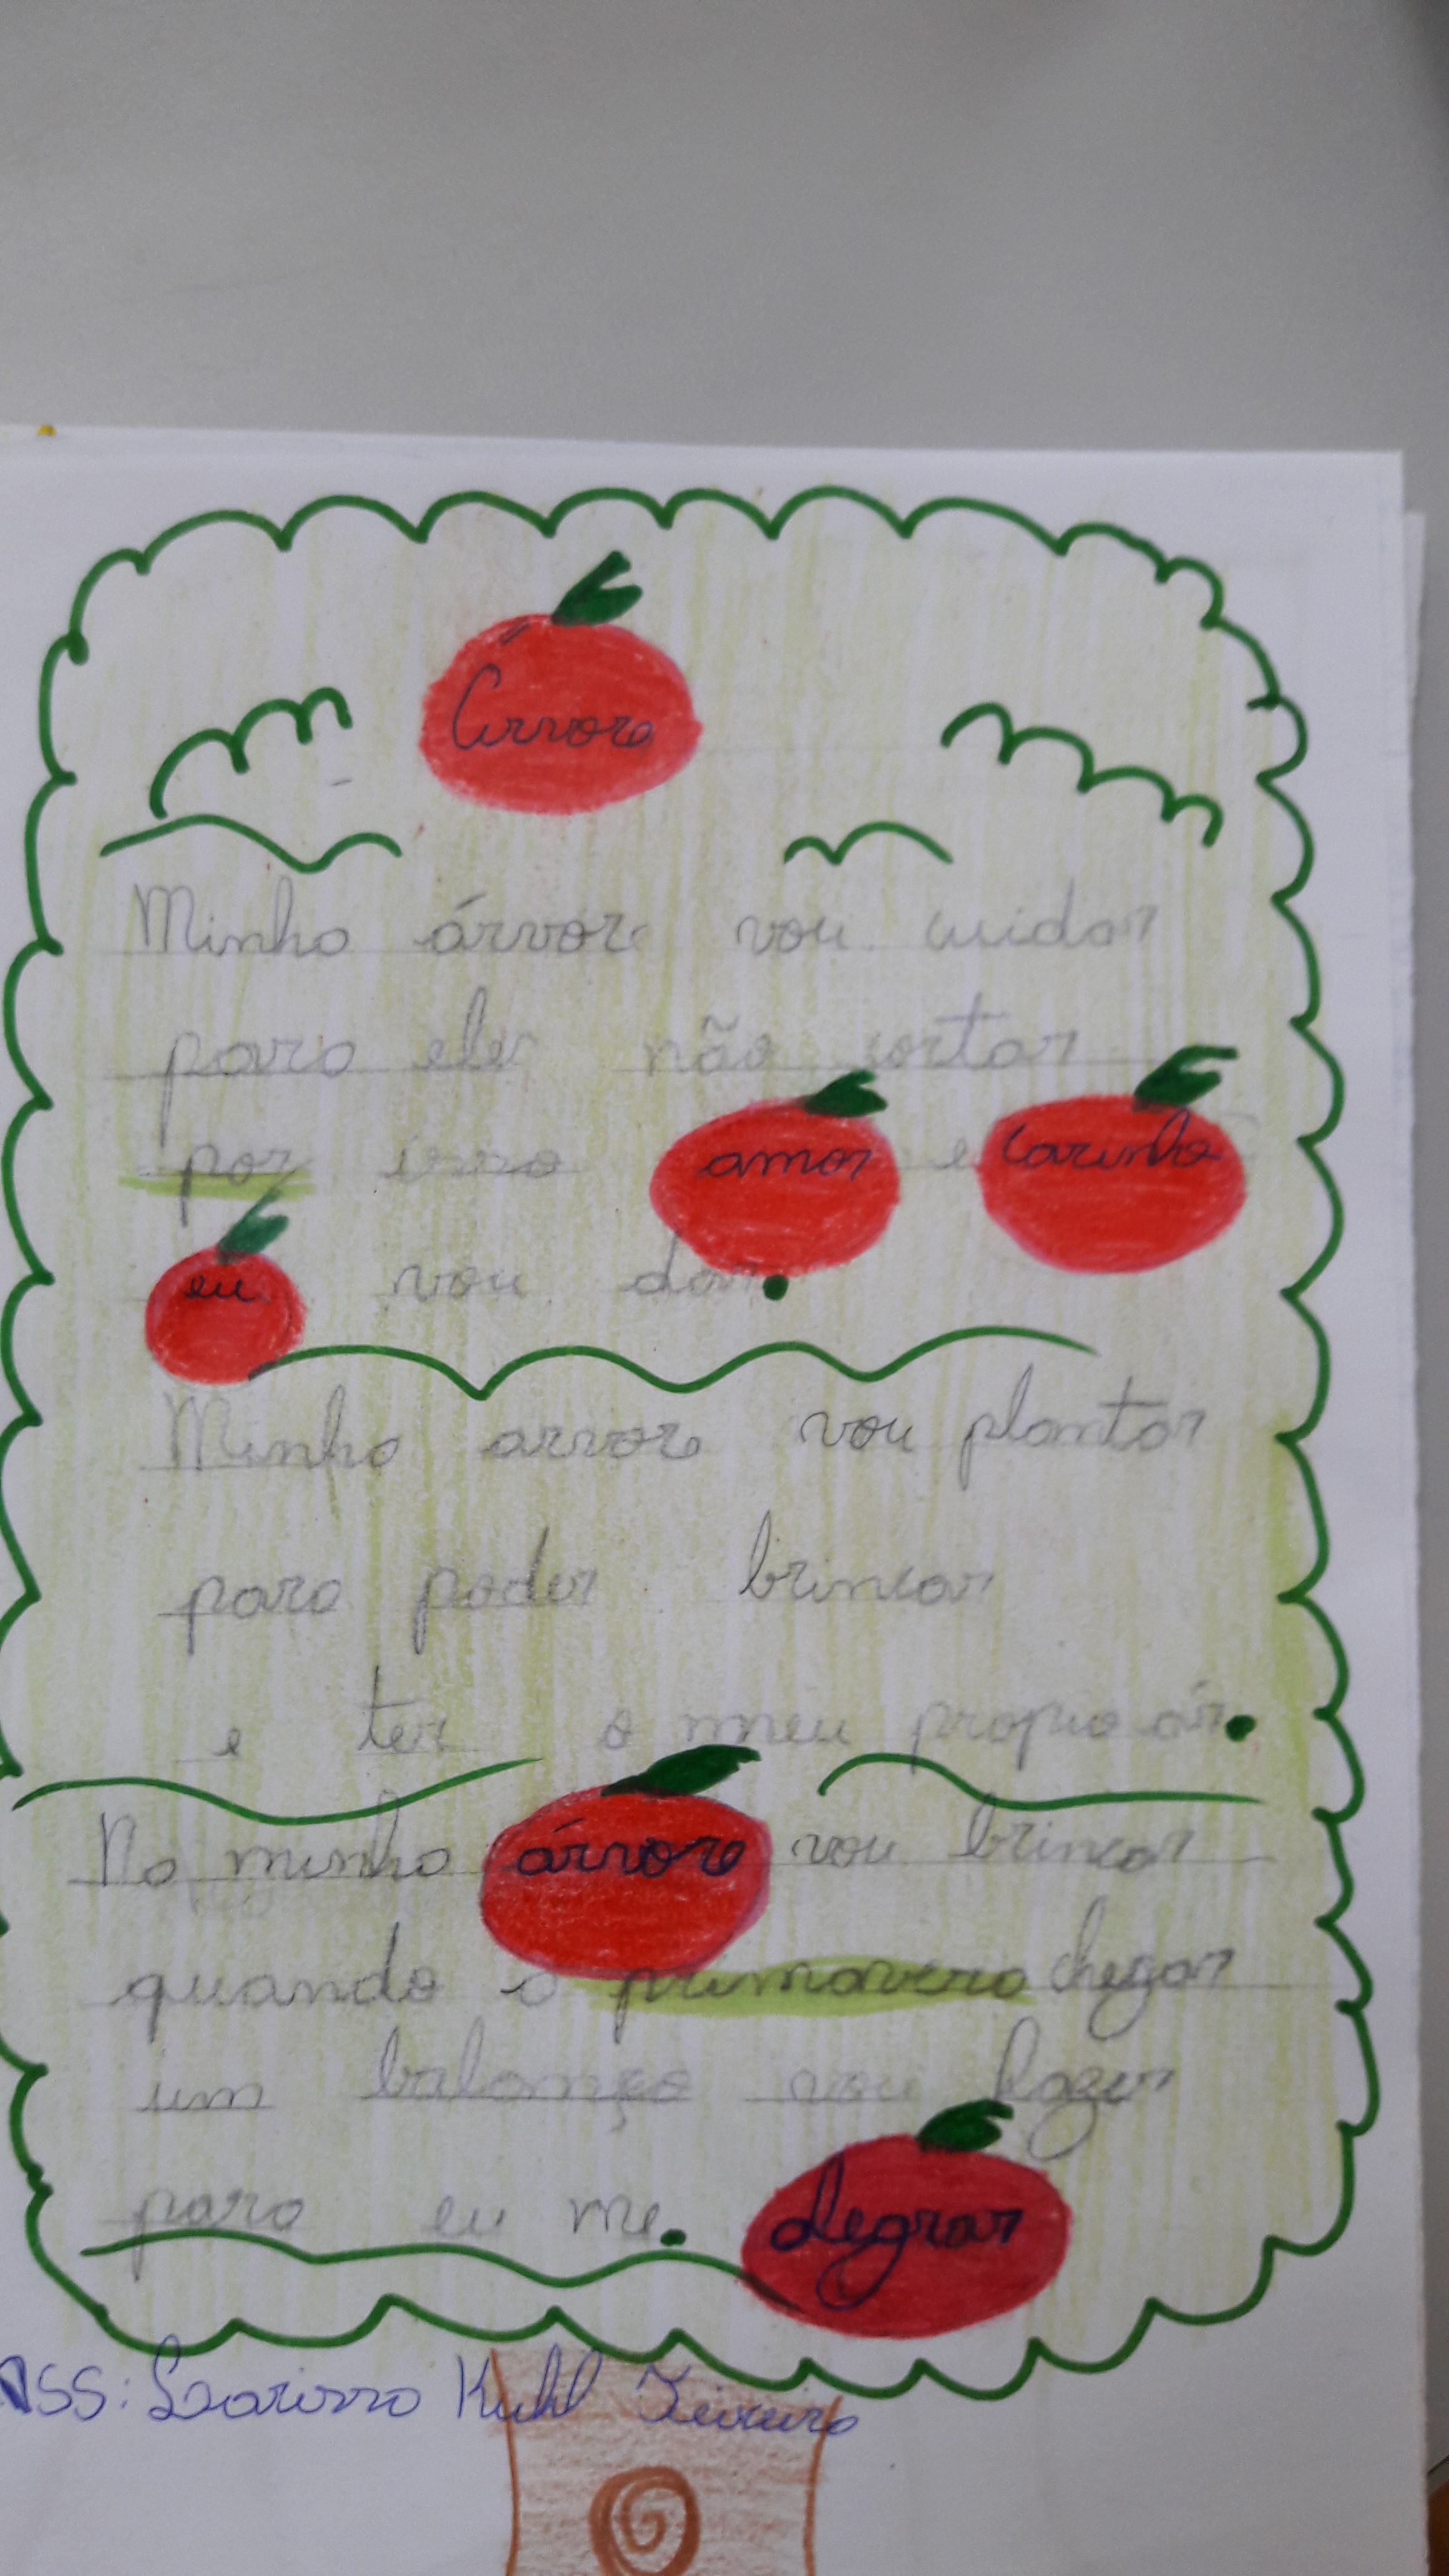 Árvore
Minha árvore vou cuidar
para eles não cortar
por isso amor e carinho
eu vou dar.
Minha arvore vou plantar
para poder brincar
e ter o meu propio ár.
Na minha árvore vou brincar
quando a primavera chegar
um balanço vou fazer
para eu me. alegrar
ASS: Larissa Kuhl Teixeira